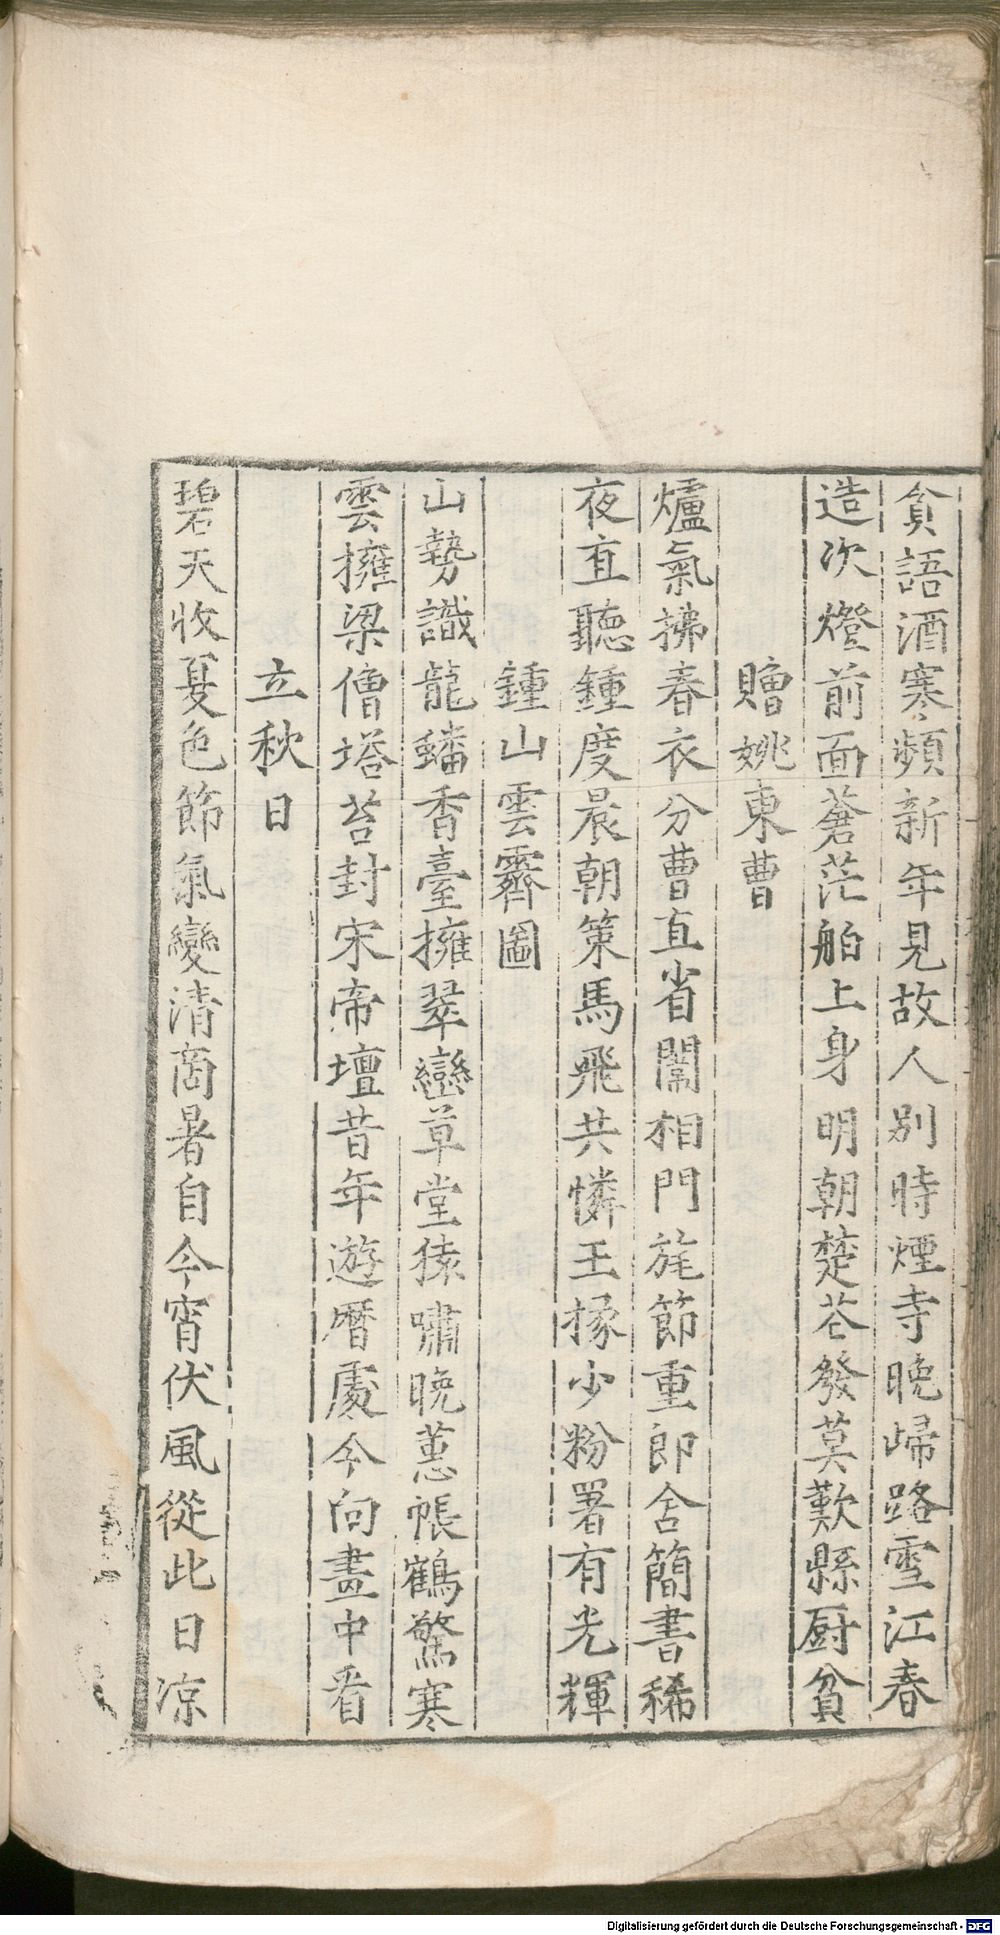 貪語酒寒頻新年見故人别時煙寺晚歸路雪江春
造次燈前面蒼茫舶上身明朝楚苍發莫歎縣厨貧
贈姚東曹
爐氣拂春衣分曹直省闈相門旄節重郎舍簡書稀
夜直聽鍾度晨朝策馬飛共憐王掾少粉署有光輝
鍾山雲霽圖
山勢識龍蟠香臺擁翠巒草堂猿嘯晚蕙帳鶴驚寒
雲擁梁僧塔苔封宋帝壇昔年遊曆處今向畫中看
立秋日
碧天收夏色節氣變清商暑自今宵伏風從此日凉
Digitalisierung gefördert durch die Deutsche Forschungsgemeinschaft - DFG